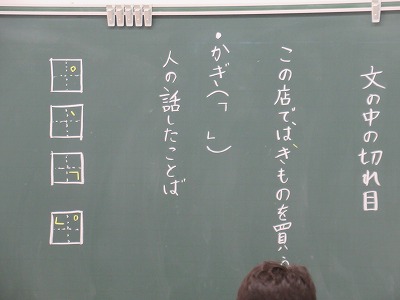 文の中の切れ目
この店では、きものを買う
・かぎ(「 」)
人の話したことば
。
、
「
。」